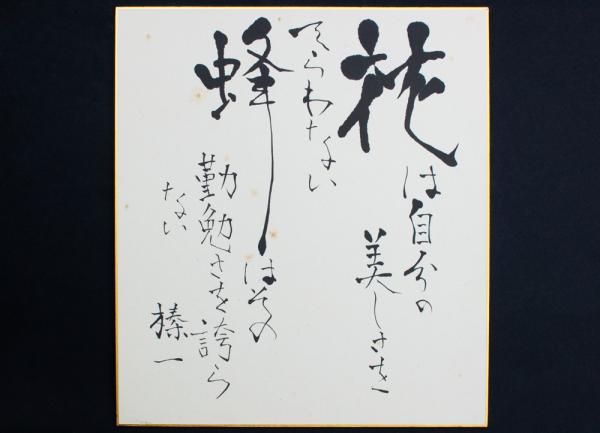 花は自分の
美しさを
てらわない
蜂はその
勤勉さを誇ら
ない
榛一